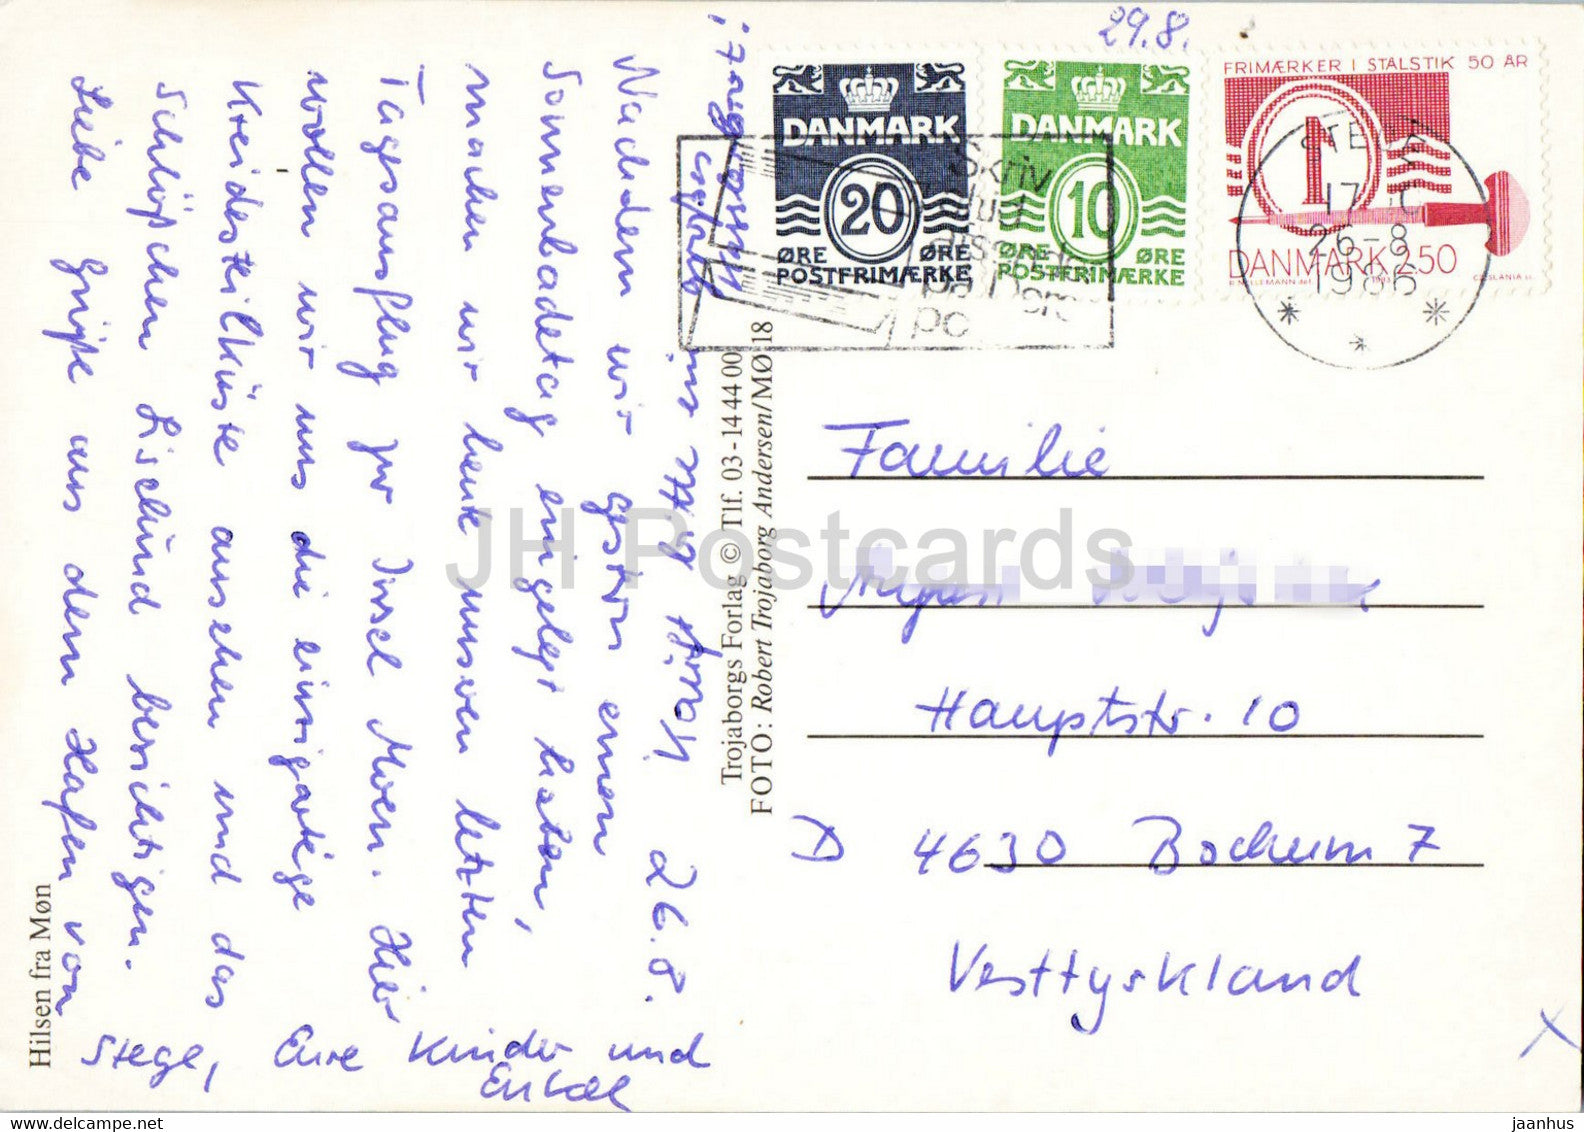 29.8.
FRIMÆRKER I STÅLSTIK 50 ÅR
DANMARK
20
ØRE ØRE
POSTFRIMÆRKE
DANMARK
10
ØRE ØRE
POSTFRIMÆRKE
1
DANMARK 2.50
STEGE
17
26-8
1986
Skriv
på Deres
Hilsen fra Møn
Trojaborgs Forlag © Tlf. 03-14 44 00
FOTO: Robert Trojaborg Andersen/MØ 18
26.8.
Nachdem wir gestern einen
Sonnenbadetag eingelegt hatten,
machen wir heute unseren letzten
Tagesausflug zur Insel Moen. Hier
wollen wir uns die einzigartige
Kreidesteilküste ansehen und das
Schlößchen Liselund besichtigen.
Liebe Grüße aus dem Hafen von
Stege, Eure Kinder und
Enkel
Familie
Hauptstr. 10
D 4630 Bochum 7
Vesttyskland
X
JH Postcards
www.delcampe.net
jaanhus